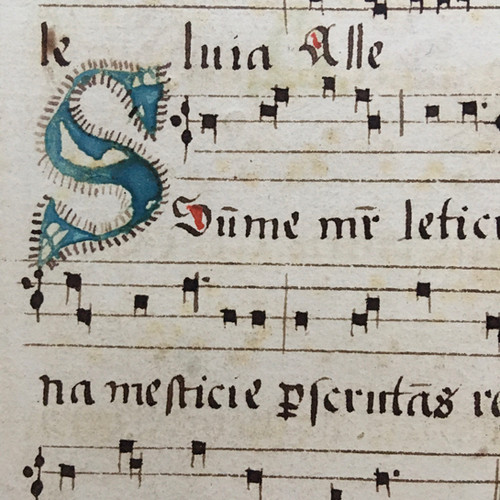 le luia Alle
Sūme mr̄ letici
na mesticie ꝑscrutās re